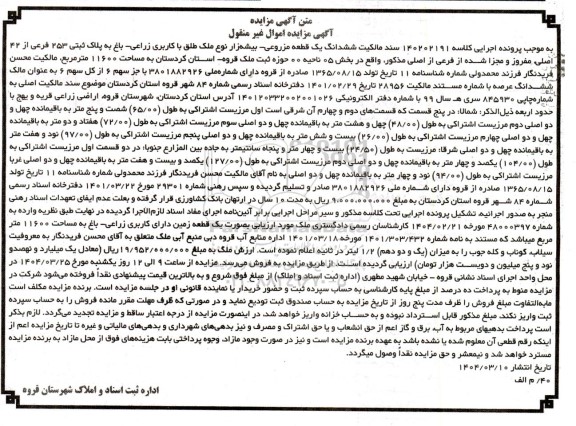 متن آگهی مزایده
آگهی مزایده اموال غیر منقول
به موجب پرونده اجرایی کلاسه ۱۴۰۲۰۲۱۹۱ سند مالکیت ششدانگ یک قطعه مزروعی- بیشه‌زار نوع ملک طلق با کاربری زراعی- باغ به پلاک ثبتی ۲۵۳ فرعی از ۴۲
اصلی، مفروز و مجزا شده از فرعی از اصلی مذکور، واقع در بخش ۰۵ ناحیه ۰۰ حوزه ثبت ملک قروه- استان کردستان به مساحت ۱۱۶۰۰ مترمربع، مالکیت محسن
فریدنگار فرزند محمدولی شماره شناسنامه ۱۱ تاریخ تولد ۱۳۶۵/۰۸/۱۵ صادره از قروه دارای شماره‌ملی ۳۸۰۱۸۸۲۹۲۶ با جز سهم ۶ از کل سهم ۶ به عنوان مالک
ششدانگ عرصه با شماره مستند مالکیت ۲۸۹۵۶ تاریخ ۱۴۰۱/۰۲/۲۹ دفترخانه اسناد رسمی شماره ۸۴ شهر قروه استان کردستان موضوع سند مالکیت اصلی به
شماره‌چاپی ۸۴۵۹۳۰ سری هـ سال ۹۹ با شماره دفتر الکترونیکی ۱۴۰۱۲۰۳۳۲۰۰۲۰۰۱۰۲۶ آدرس استان کردستان، شهرستان قروه، اراضی زراعی قریه و یهج با
حدود اربعه ذیل‌الذکر: شمالا: در پنج قسمت که قسمت‌های دوم و چهارم آن شرقی است اول مرزیست اشتراکی به طول (۶۵/۰۰) شصت و پنج متر به باقیمانده چهل و
دو اصلی دوم مرزیست اشتراکی به طول (۴۸/۰۰) چهل و هشت متر به باقیمانده چهل و دو اصلی سوم مرزیست اشتراکی به طول (۷۲/۰۰) هفتاد و دو متر به باقیمانده
چهل و دو اصلی چهارم مرزیست اشتراکی به طول (۲۶/۰۰) بیست و شش متر به باقیمانده چهل و دو اصلی پنجم مرزیست اشتراکی به طول (۹۷/۰۰) نود و هفت متر
به باقیمانده چهل و دو اصلی شرقا: مرزیست به طول (۲۴/۵۰) بیست و چهار متر و پنجاه سانتیمتر به جاده بین المزارع جنوبا: در دو قسمت اول مرزیست اشتراکی به
طول (۱۰۴/۰۰) یکصد و چهار متر به باقیمانده چهل و دو اصلی دوم مرزیست اشتراکی به طول (۱۲۷/۰۰) یکصد و بیست و هفت متر به باقیمانده چهل و دو اصلی غربا
مرزیست اشتراکی به طول (۹۴/۰۰) نود و چهار متر به باقیمانده چهل و دو اصلی، به نام آقای مالکیت محسن فریدنگار فرزند محمدولی شماره شناسنامه ۱۱ تاریخ تولد
۱۳۶۵/۰۸/۱۵ صادره از قروه دارای شماره ملی ۳۸۰۱۸۸۲۹۲۶ صادر و تسلیم گردیده و سپس رهنی شماره ۲۹۳۰۱ مورخ ۱۴۰۱/۰۳/۲۲ دفترخانه اسناد رسمی
شماره ۸۴ شهر قروه استان کردستان به مبلغ ۹.۰۰۰.۰۰۰.۰۰۰ ریال به مدت ۱۰ سال در ارتهان بانک کشاورزی قرار گرفته و بعلت عدم ایفای تعهدات اسناد رهنی
منجر به صدور اجرائیه، تشکیل پرونده اجرایی تحت کلاسه مذکور و سیر مراحل اجرایی برابر آئین‌نامه اجرای مفاد اسناد لازم‌الاجرا گردیده در نهایت طبق نظریه وارده به
شماره ۴۸۰۰۰۳۹۷ مورخه ۱۴۰۴/۰۲/۲۱ کارشناسان رسمی دادگستری ملک مورد ارزیابی بصورت یک قطعه زمین دارای کاربری زراعی- باغ به مساحت ۱۱۶۰۰ متر
مربع میباشد که مستند به نامه شماره ۱۴۰۱/۳۰۳/۴۳۲ مورخه ۱۴۰۱/۰۳/۱۸ اداره منابع آب قروه دبی منبع آبی ملک متعلق به آقای محسن فریدنگار به معروفیت
سیلاب کوناب و کله جوب را به میزان (یک و دو دهم) ۱/۲ لیتر در ثانیه اعلام نموده است. ارزش ملک به مبلغ ۱۹/۹۵۲/۰۰۰/۰۰۰ ریال (معادل یک میلیارد و نهصدو
نود و پنج میلیون و دویست هزار تومان) ارزیابی گردیده است. از طریق مزایده به فروش می‌رسد. مزایده از ساعت ۹ الی ۱۲ روز یکشنبه مورخ ۱۴۰۴/۰۳/۲۵ در
محل واحد اجرای اسناد نشانی قروه - خیابان شهید مطهری (اداره ثبت اسناد و املاک) از مبلغ فوق شروع و به بالاترین قیمت پیشنهادی نقداً فروخته می‌شود شرکت در
مزایده منوط به پرداخت ده درصد از مبلغ پایه کارشناسی به حساب سپرده ثبت و حضور خریدار یا نماینده قانونی او در جلسه مزایده است. برنده مزایده مکلف است
مابه‌التفاوت مبلغ فروش را ظرف مدت پنج روز از تاریخ مزایده به حساب صندوق ثبت تودیع نماید و در صورتی که ظرف مهلت مقرر مانده فروش را به حساب سپرده
ثبت واریز نکند، مبلغ مذکور قابل استرداد نبوده و به حساب خزانه واریز خواهد شد، در اینصورت مزایده از درجه اعتبار ساقط و مزایده تجدید می‌گردد. لازم بذکر
است پرداخت بدهیهای مربوط به آب، برق و گاز اعم از حق انشعاب و یا حق اشتراک و مصرف و نیز بدهی‌های شهرداری و بدهی‌های مالیاتی و غیره تا تاریخ مزایده اعم از
اینکه رقم قطعی آن معلوم شده یا نشده باشد به عهده برنده مزایده است و نیز در صورت وجود مازاد، وجوه پرداختی بابت هزینه‌های فوق از محل مازاد به برنده مزایده
مسترد خواهد شد و نیمعشر و حق مزایده نقداً وصول میگردد.
تاریخ انتشار ۱۴۰۴/۰۳/۱۰
۴۰/ م الف
اداره ثبت اسناد و املاک شهرستان قروه